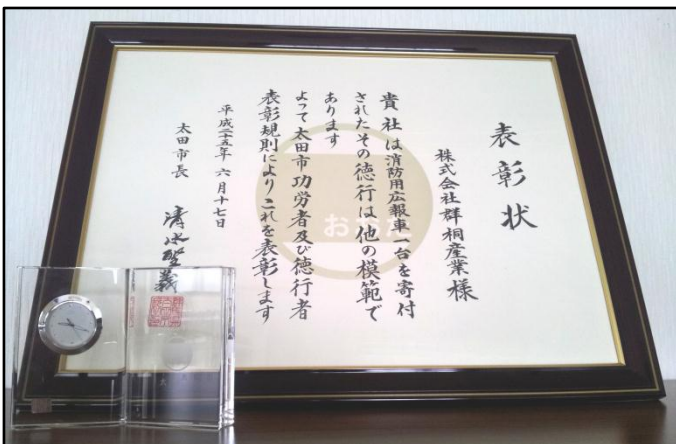 表彰状
株式会社群桐産業様
貴社は消防用広報車一台を寄付
されたその徳行は他の模範で
あります
よって太田市功労者及び徳行者
表彰規則によりこれを表彰します
平成二十五年六月十七日
太田市長 清水聖義
おおた